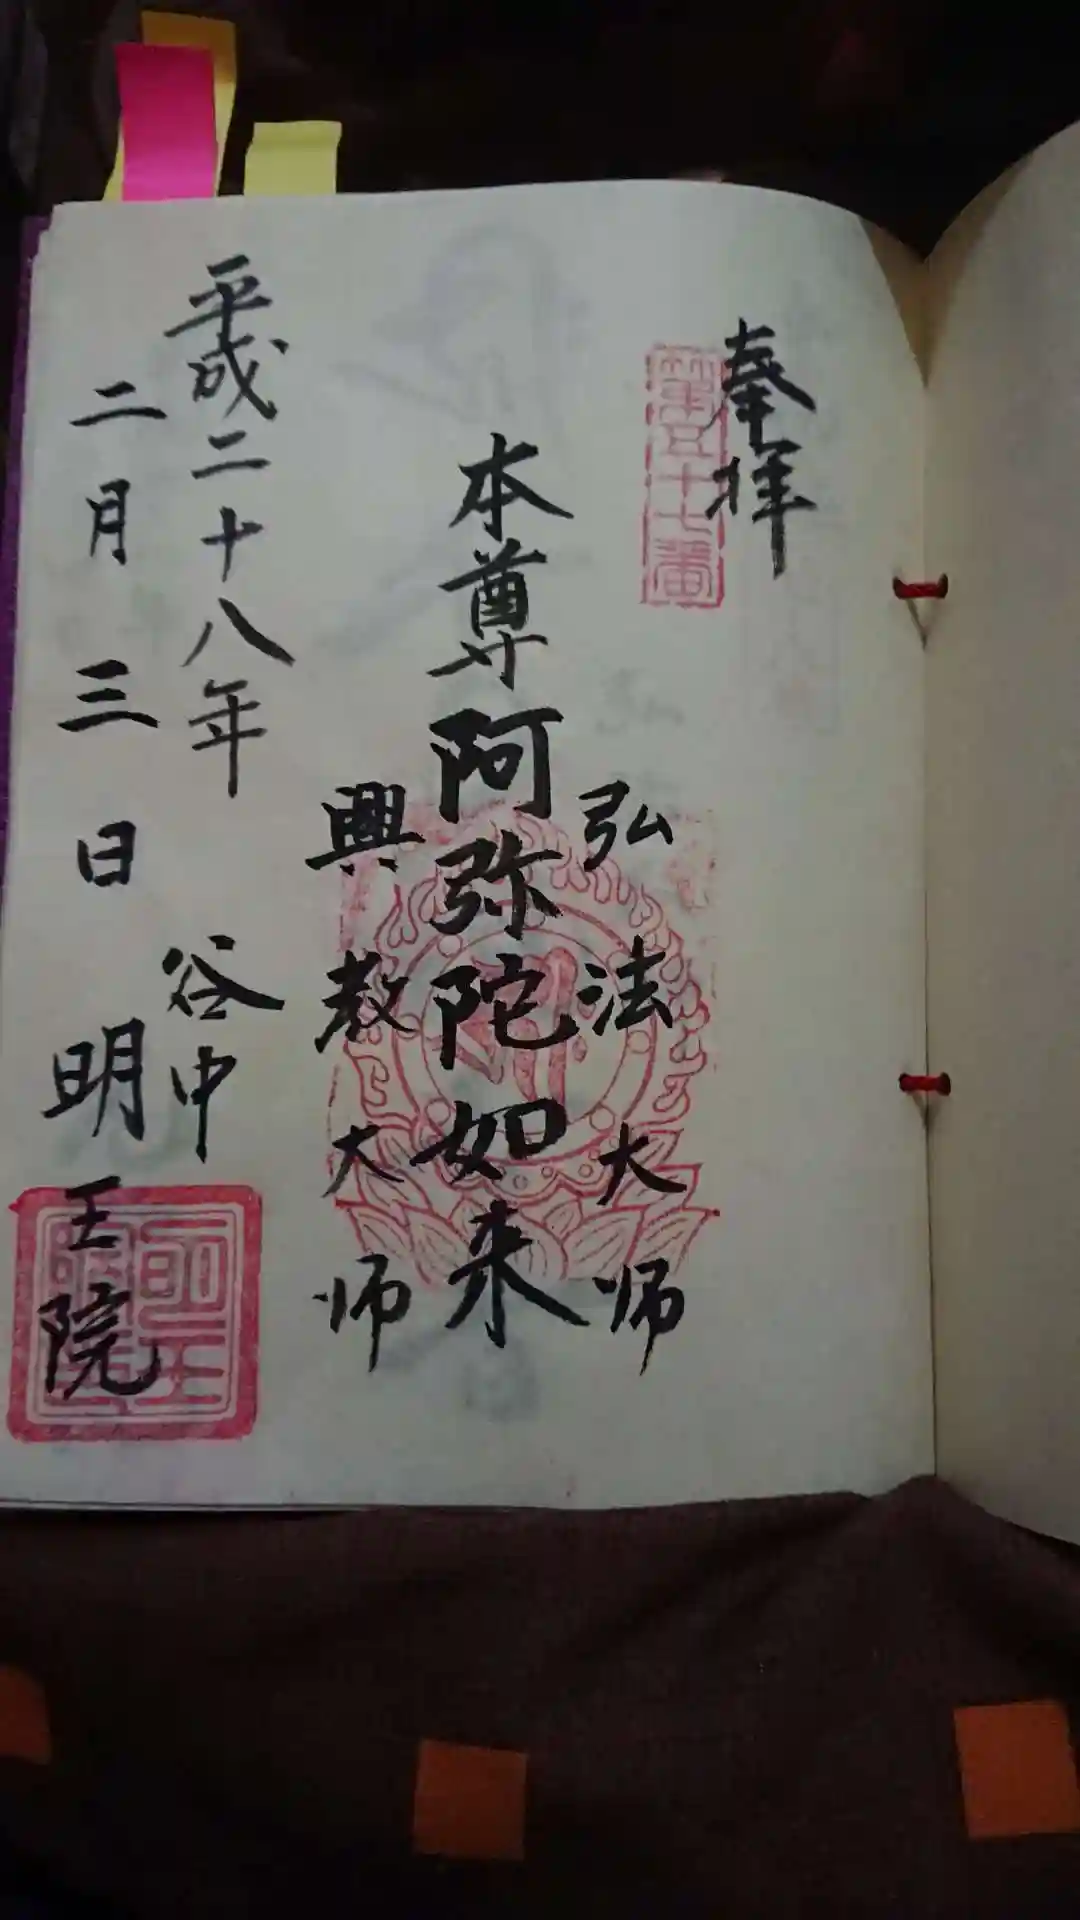 奉拝
第五十七番
弘法大师
本尊阿弥陀如来
興教大师
平成二十八年
二月三日
谷中
明王院
明王院